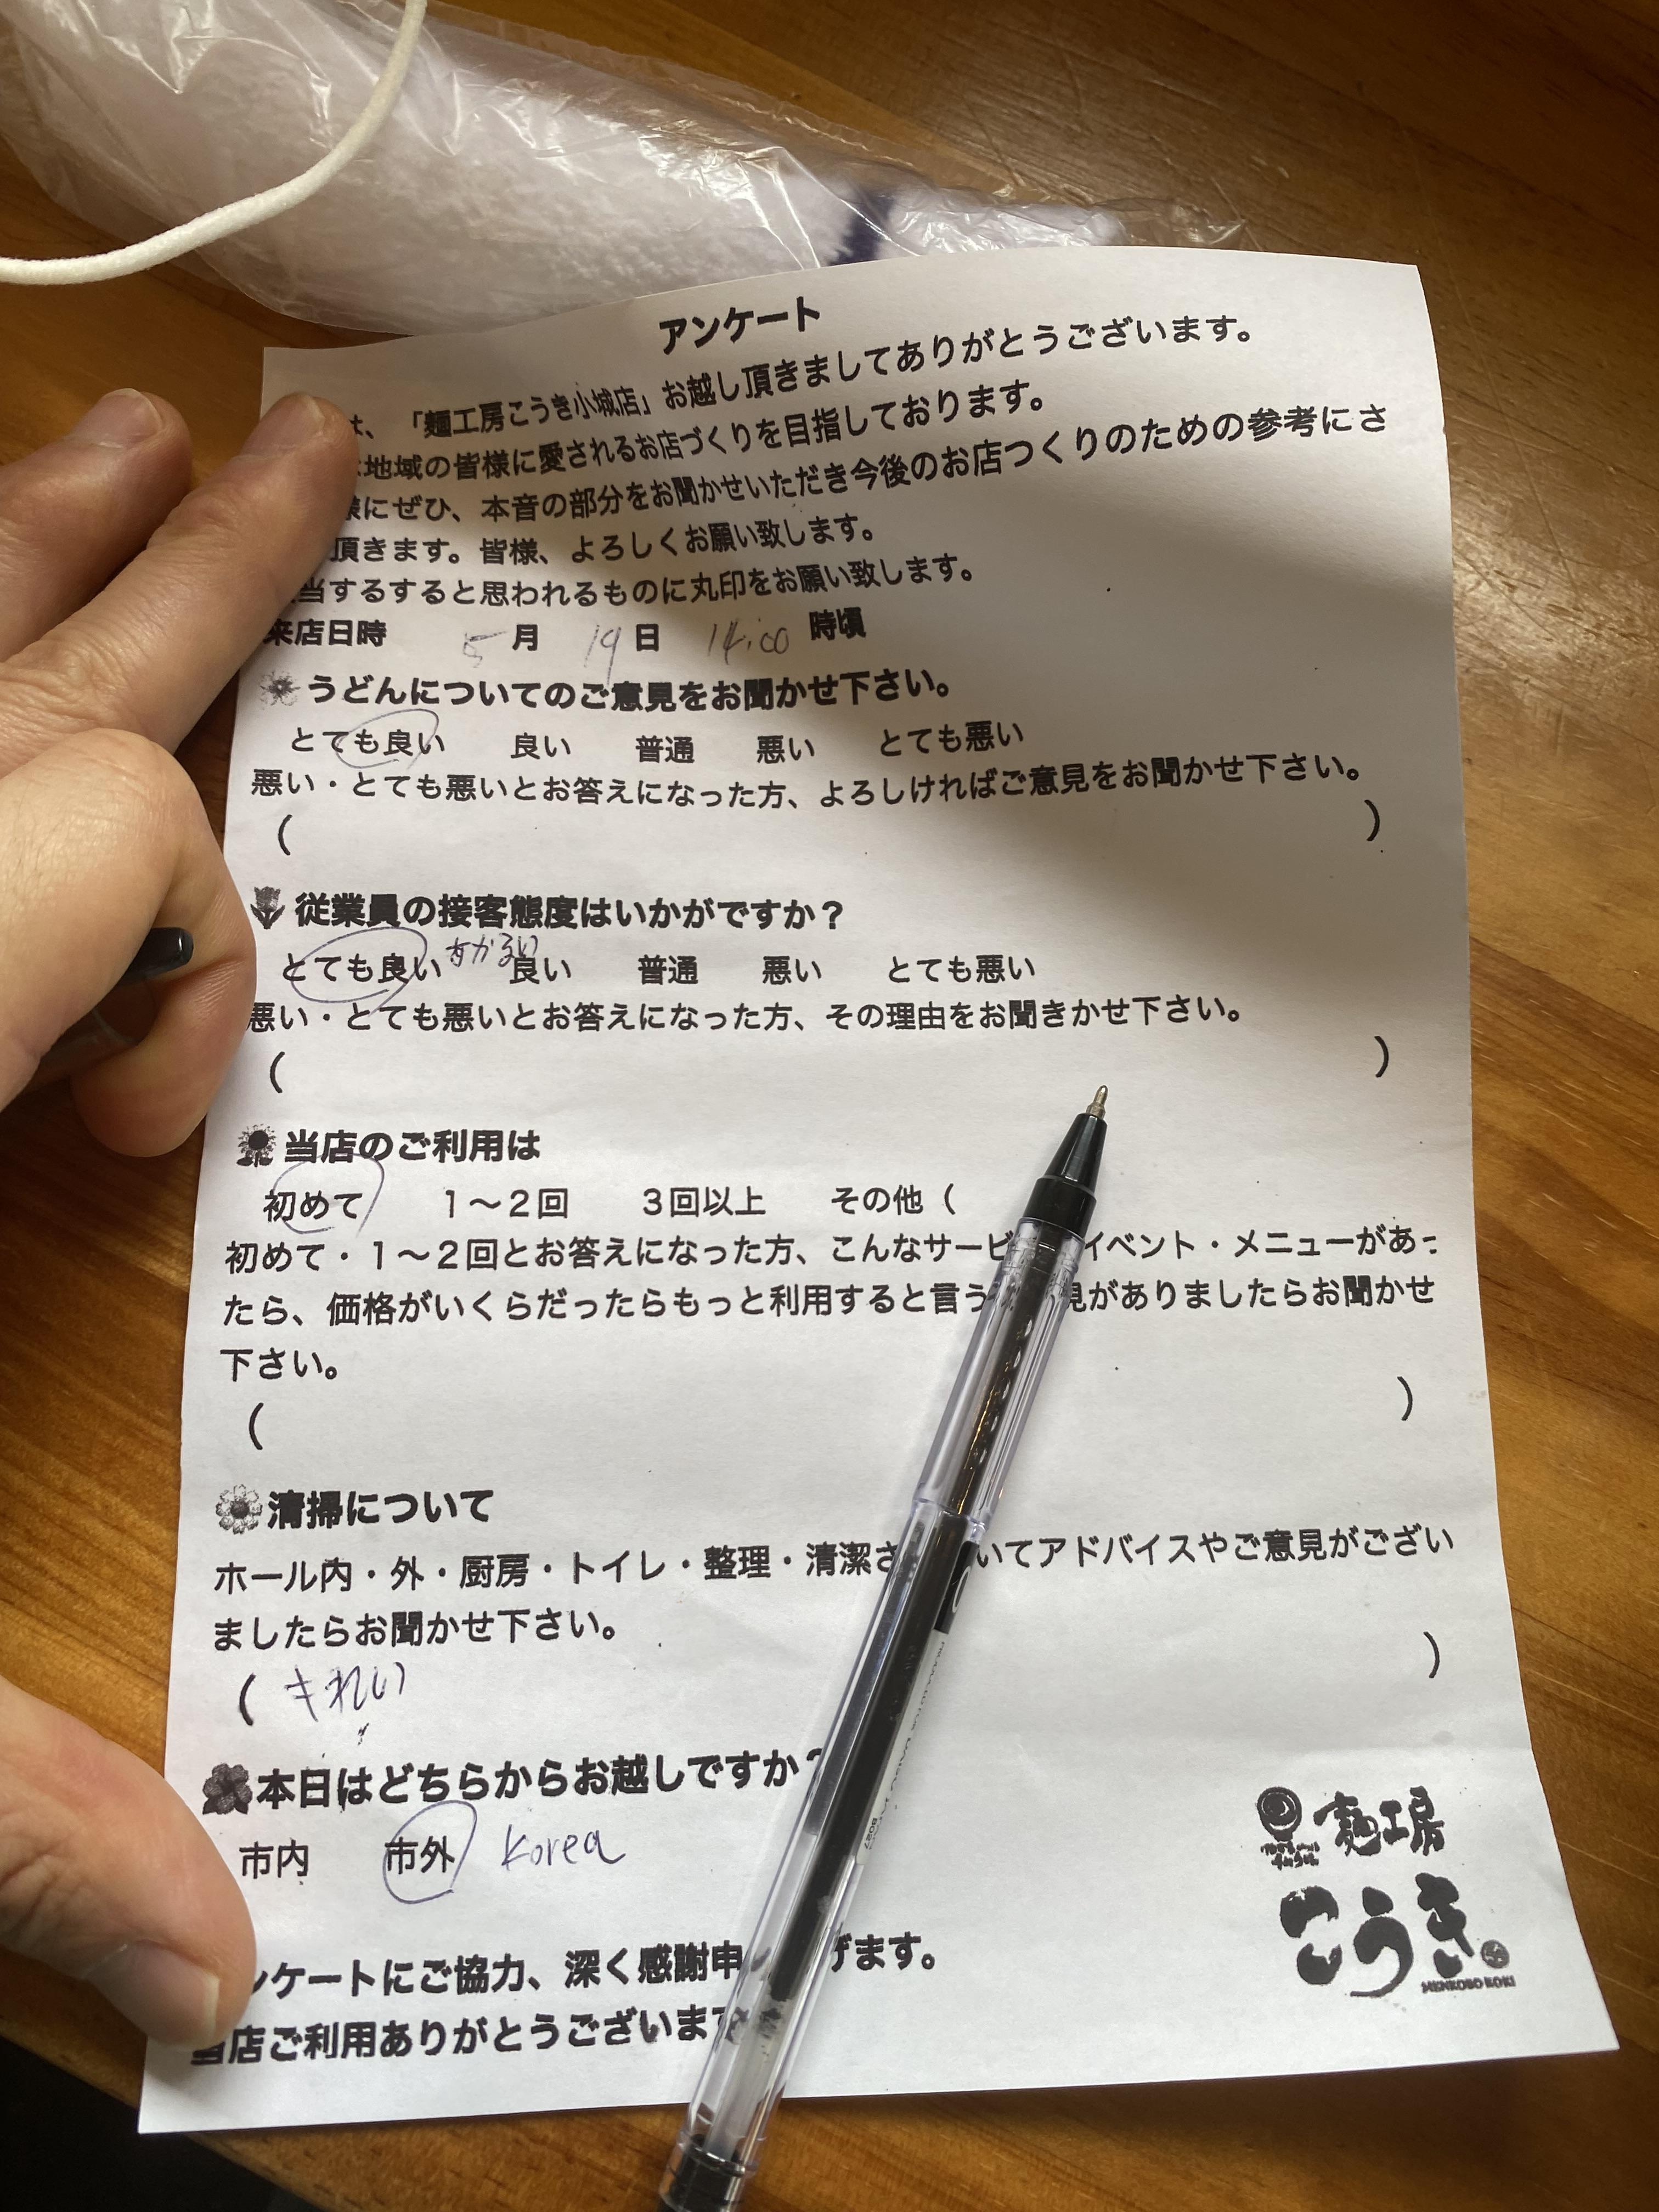 アンケート
は、「麺工房こうき小城店」お越し頂きましてありがとうございます。
地域の皆様に愛されるお店づくりを目指しております。
様にぜひ、本音の部分をお聞かせいただき今後のお店つくりのための参考にさ
頂きます。皆様、よろしくお願い致します。
当するすると思われるものに丸印をお願い致します。
来店日時 5月 19日 14:00 時頃
うどんについてのご意見をお聞かせ下さい。
とても良い 良い 普通 悪い とても悪い
悪い・とても悪いとお答えになった方、よろしければご意見をお聞かせ下さい。
( )
従業員の接客態度はいかがですか？
とても良い 良い 普通 悪い とても悪い
悪い・とても悪いとお答えになった方、その理由をお聞きかせ下さい。
( )
当店のご利用は
初めて 1〜2回 3回以上 その他（
初めて・1〜2回とお答えになった方、こんなサービ イベント・メニューがあっ
たら、価格がいくらだったらもっと利用すると言う 見がありましたらお聞かせ
下さい。
( )
清掃について
ホール内・外・厨房・トイレ・整理・清潔さ いてアドバイスやご意見がござい
ましたらお聞かせ下さい。
( きれい )
本日はどちらからお越しですか？
市内 市外 Korea
ンケートにご協力、深く感謝申 げます。
当店ご利用ありがとうございます
麺工房
こうき
MENKOBO KOKI